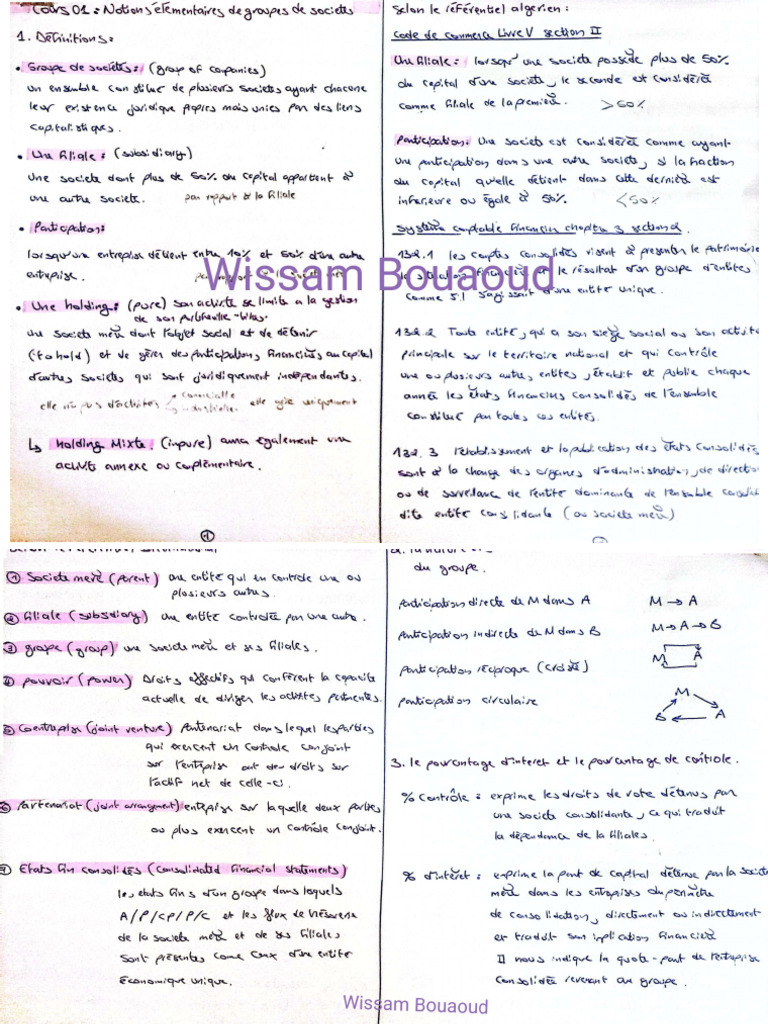 Cours 01 : Notions élémentaires de groupes de sociétés
1. Définitions :
• Groupe de sociétés : (group of companies)
un ensemble constitué de plusieurs sociétés ayant chacune
leur existence juridique propres mais unies par des liens
capitalistiques.
• Une filiale : (subsidiary)
Une société dont plus de 50% du capital appartient à
une autre société. par rapport à la filiale
• Participation :
lorsqu'une entreprise détient entre 10% et 50% d'une autre
entreprise.
• Une holding : (pure) son activité se limite à la gestion
de son portefeuille-titres.
une société mère dont l'objet social est de détenir
(to hold) et de gérer des participations financières au capital
d'autres sociétés qui sont juridiquement indépendantes.
elle n'a pas d'activités commerciale
industrielle. elle gère uniquement
↳ Holding Mixte : (impure) aura également une
activité annexe ou complémentaire.
1
Selon le référentiel algérien :
Code de commerce Livre V section II
Une filiale : lorsqu'une société possède plus de 50%
du capital d'une société, la seconde est considérée
comme filiale de la première. >50%
Participation : Une société est considérée comme ayant
une participation dans une autre société, si la fraction
du capital qu'elle détient dans cette dernière est
inférieure ou égale à 50%. <50%
Système comptable financier chapitre 3 section 2.
132.1 les comptes consolidés visent à présenter le patrimoine
la situation financière et le résultat d'un groupe d'entités
comme s'il s'agissait d'une entité unique.
132.2 Toute entité, qui a son siège social ou son activité
principale sur le territoire national et qui contrôle
une ou plusieurs autres entités, établit et publie chaque
année les états financiers consolidés de l'ensemble
constitué par toutes ces entités.
132.3 l'établissement et la publication des états consolidés
sont à la charge des organes d'administration, de direction
ou de surveillance de l'entité dominante de l'ensemble consolidé
dite entité consolidante (ou société mère)
Wissam Bouaoud
① Société mère (parent) une entité qui en contrôle une ou
plusieurs autres.
② filiale (subsidiary) une entité contrôlée par une autre.
③ groupe (group) une société mère et ses filiales.
④ pouvoir (power) Droits effectifs qui confèrent la capacité
actuelle de diriger les activités pertinentes.
⑤ Coentreprise (joint venture) Partenariat dans lequel les parties
qui exercent un contrôle conjoint
sur l'entreprise ont des droits sur
l'actif net de celle-ci.
⑥ Partenariat (joint arrangement) entreprise sur laquelle deux parties
ou plus exercent un contrôle conjoint.
⑦ Etats fin consolidés (Consolidated financial statements)
les états fins d'un groupe dans lesquels
A/P/CP/P/C et les flux de trésorerie
de la société mère et de ses filiales
sont présentés comme ceux d'une entité
économique unique.
du groupe.
participation directe de M dans A M → A
participation indirecte de M dans B M → A → B
participation réciproque (croisée) M A
participation circulaire M
B A
3. le pourcentage d'intérêt et le pourcentage de contrôle.
% Contrôle : exprime les droits de vote détenus par
une société consolidante, ce qui traduit
la dépendance de la filiales.
% d'intérêt : exprime la part de capital détenue par la société
mère dans les entreprises du périmètre
de consolidation, directement ou indirectement
et traduit son implication financière
Il nous indique la quote-part de l'entreprise
consolidée revenant au groupe.
Wissam Bouaoud